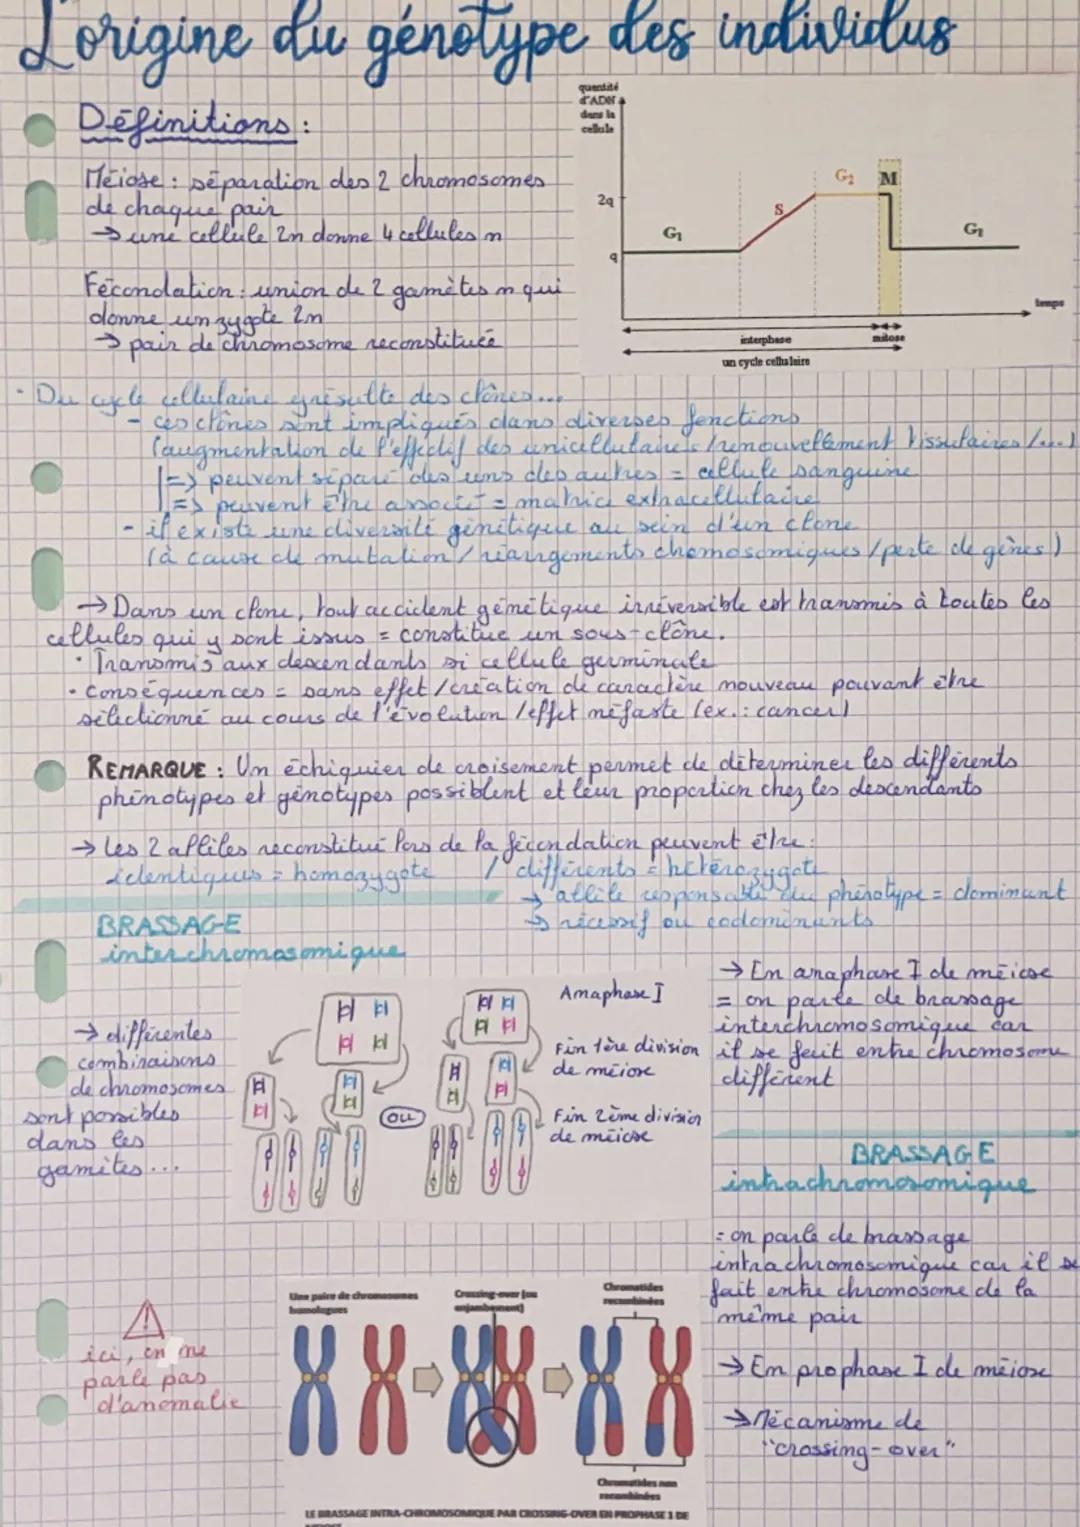 L'origine du génotype des individus
Définitions :
Méiose : séparation des 2 chromosomes
de chaque pair
→ une cellule 2n donne 4 cellules n
Fécondation : union de 2 gamètes n qui
donne un zygote 2n
→ pair de chromosome reconstituée
quantité
d'ADN
dans la
cellule
2q
q
G₁
S
G₂
M
G₁
temps
interphase
mitose
un cycle cellulaire
· Du cycle cellulaire grésulte des clônes...
- ces clônes sont impliqués dans diverses fonctions
(augmentation de l'effectif des unicellulaires / renouvellement tissulaires /...)
|=> peuvent séparé des uns des autres = cellule sanguine
|=> peuvent être associé = matrice extracellulaire
- il existe une diversité génétique au sein d'un clone
(à cause de mutation / réarrgements chomosomiques / perte de gènes)
→ Dans un clone, tout accident génétique irréversible est transmis à toutes les
cellules qui y sont issus = constitue un sous-clône.
· Transmis aux descendants si cellule germinale
· Conséquences = sans effet / création de caractère nouveau pouvant être
sélectionné au cours de l'évolution / effet néfaste (ex. : cancer)
REMARQUE : Un échiquier de croisement permet de déterminer les différents
phénotypes et génotypes possiblent et leur proportion chez les descendants
→ Les 2 allèles reconstitué lors de la fécondation peuvent être :
identiques = homozygote / différents = hétérozygote
→ allèle responsable du phénotype = dominant
→ récessif ou codominants
BRASSAGE
interchromosomique
→ différentes
combinaisons
de chromosomes
sont possibles
dans les
gamètes...
OU
Anaphase I
Fin 1ère division
de méiose
Fin 2ème division
de méiose
→ En anaphase I de méiose
= on parle de brassage
interchromosomique car
il se fait entre chromosome
différent
BRASSAGE
intrachromosomique
= on parle de brassage
intrachromosomique car il se
fait entre chromosome de la
même pair
→ En prophase I de méiose
→ Mécanisme de
"crossing-over"
⚠
ici, on ne
parle pas
d'anomalie
Une paire de chromosomes
homologues
Crossing-over (ou
enjambement)
Chromatides
recombinées
Chromatides non
recombinées
LE BRASSAGE INTRA-CHROMOSOMIQUE PAR CROSSING-OVER EN PROPHASE 1 DE
MEIOSE